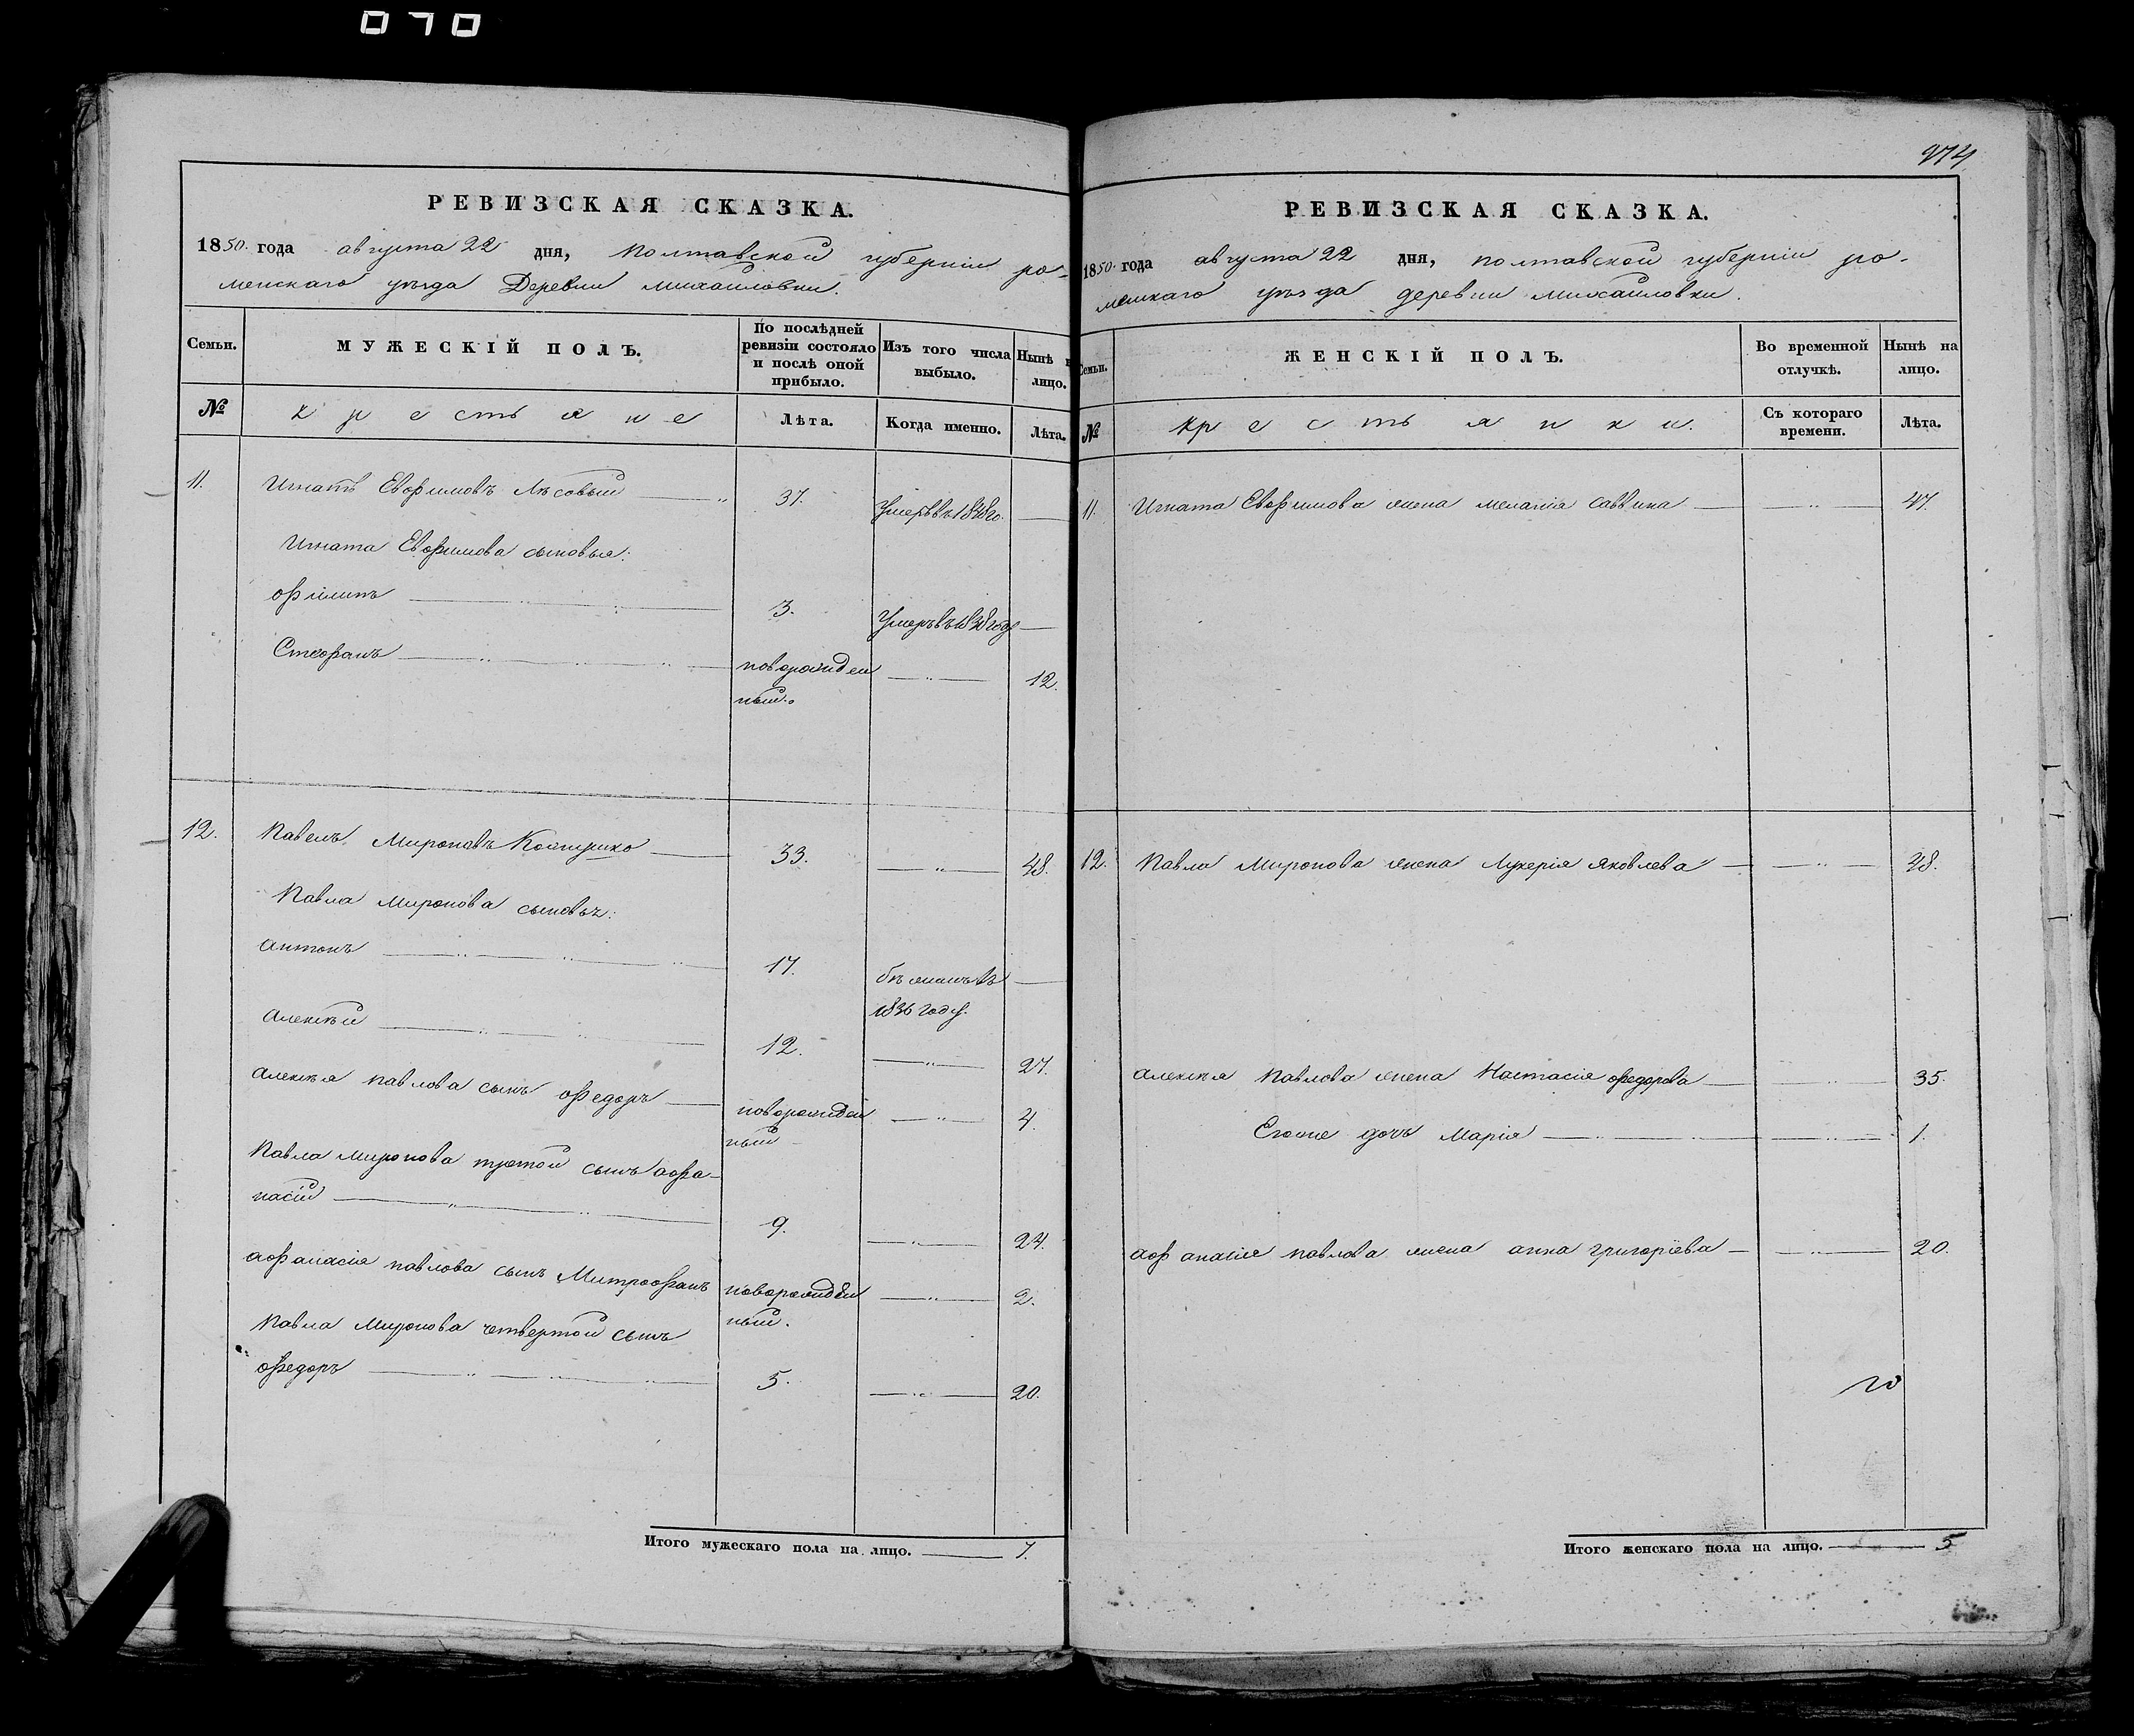 070
РЕВИЗСКАЯ СКАЗКА.
1850. года августа 22 дня, Полтавской губерніи ро-
менскаго уѣзда Деревни михайловки.
Семьи.
МУЖЕСКІЙ ПОЛЪ.
По послѣдней
ревизіи состояло
и послѣ оной
прибыло.
Изъ того числа
выбыло.
Нынѣ н
лицо.
№
крестьяне
Лѣта.
Когда именно.
Лѣта.
11. Игнатъ Евфимовъ Лѣсовый 37. Умеръ въ 1848 го.
Игната Евфимова сыновья:
Филипъ 3. Умеръ въ 1838 году
Стефанъ новорожден 12.
ный.
12. Павелъ Мироновъ 33. 48.
Павла Миронова сыновья:
антонъ 17. бѣжалъ въ
1836 году.
алексѣй 12. 27.
алексѣя павлова сынъ Федоръ новорожден 4.
ный
Павла Миронова третой сынъ афа-
насій 9. 24.
афанасія павлова сынъ Митрофанъ новорожден 2.
ный.
Павла Миронова четвертой сынъ
Федоръ 5. 20.
Итого мужескаго пола на лицо. 7.
974
РЕВИЗСКАЯ СКАЗКА.
1850. года августа 22 дня, полтавской губерніи ро-
менскаго уѣзда деревни михайловки.
Семьи.
ЖЕНСКІЙ ПОЛЪ.
Во временной
отлучкѣ.
Нынѣ на
лицо.
№
крестьянки.
Съ котораго
времени.
Лѣта.
11. Игната Евфимова жена меланія саввина 47.
12. Павла Миронова жена Лукерія яковлева 48.
алексѣя павлова жена Настасія федорова 35.
Егоже дочь Марія 1.
афанасія павлова жена анна григоріева 20.
Итого женскаго пола на лицо. 5